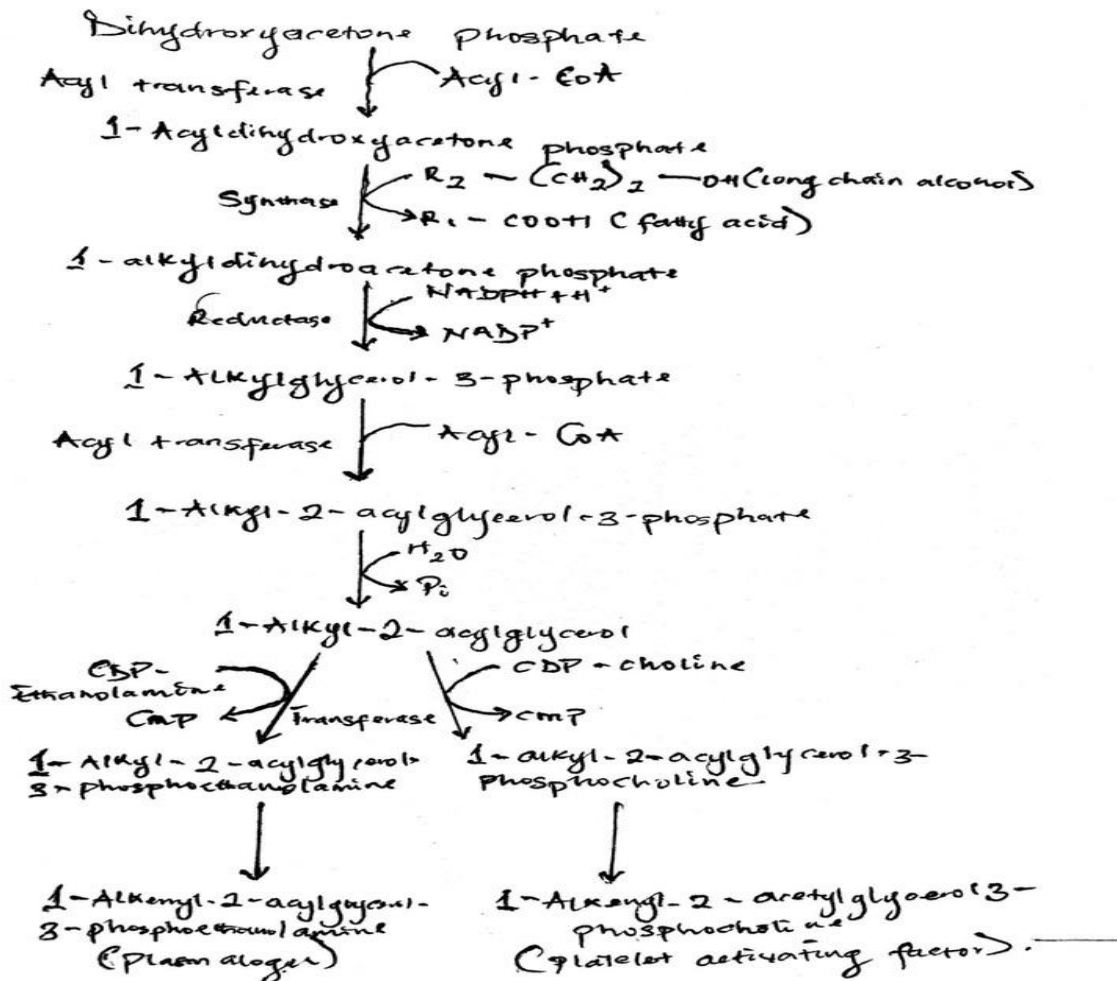 Dihydroxyacetone phosphate
Acyl transferase
Acyl-CoA
1-Acyldihydroxyacetone phosphate
Synthase
R2 - (CH2)2 - OH (long chain alcohol)
R1 - COOH (fatty acid)
1-alkyldihydroacetone phosphate
Reductase
NADPH + H+
NADP+
1-Alkylglycerol-3-phosphate
Acyl transferase
Acyl-CoA
1-Alkyl-2-acylglycerol-3-phosphate
H2O
Pi
1-Alkyl-2-acylglycerol
CDP-
Ethanolamine
CMP
Transferase
CDP-choline
CMP
1-Alkyl-2-acylglycerol-
3-phosphoethanolamine
1-alkyl-2-acylglycerol-3-
phosphocholine
1-Alkenyl-2-acylglycerol-
3-phosphoethanolamine
(Plasmaloger)
1-Alkenyl-2-acetylglycerol 3-
phosphocholine
(Platelet activating factor).